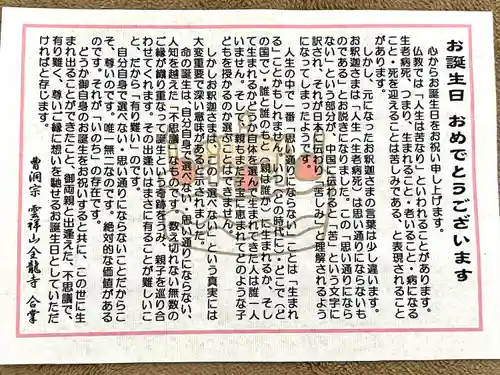 お誕生日 おめでとうございます
心からお誕生日をお祝い申し上げます。
仏教では「人生は苦なり」といわれることがあります。
生老病死、つまり、生まれること・老いること・病になる
こと・死を迎えることは苦しみである、と表現されること
があります。
しかし、元になったお釈迦さまの言葉は少し違います。
お釈迦さまは「人生(生老病死)は思い通りにならないも
のである」とお説きになりました。この「思い通りになら
ない」という部分が、中国に伝わると「苦」という文字に
訳され、それが日本に伝わり「苦しみ」と理解されるよう
になってしまったようです。
人生の中で一番「思い通りにならない」ことは「生まれ
る」ことかもしれません。いつ・どの時代に・どこで・ど
の国で・誰と誰のもと（親は誰か）に生まれるか、そし
て生まれるかどうか自体を選んで生まれてきた人は誰一人
いません。そして、親もまた子宝に恵まれてどのような子
どもを授かるのか選ぶことはできません。
しかしお釈迦さまは、この「選べない」という真実には
大変重要で深い意味があると示されました。
命の誕生は、自分自身で選べない・思い通りにならない、
人知を越えた「不思議」なものです。数えきれない無数の
ご縁が織り重なって誕生という奇跡をうみ、親子を巡り合
わせてくれます。その出逢いはまさに有ることが難しいこ
と、だから「有り難い」のです。
自分自身で選べない・思い通りにならないことだからこ
そ、尊いのです。唯一無二なのです。絶対的な価値がある
のです。それが「いのち」の存在です。
どうか御自身のお誕生をお祝いすると共に、この世に生
まれ出ることができたこと、御両親と出逢えた、不思議で、
有り難く、尊いご縁に想いを馳せるお誕生日としていただ
ければと存じます。
曹洞宗 雲祥山全龍寺 合掌